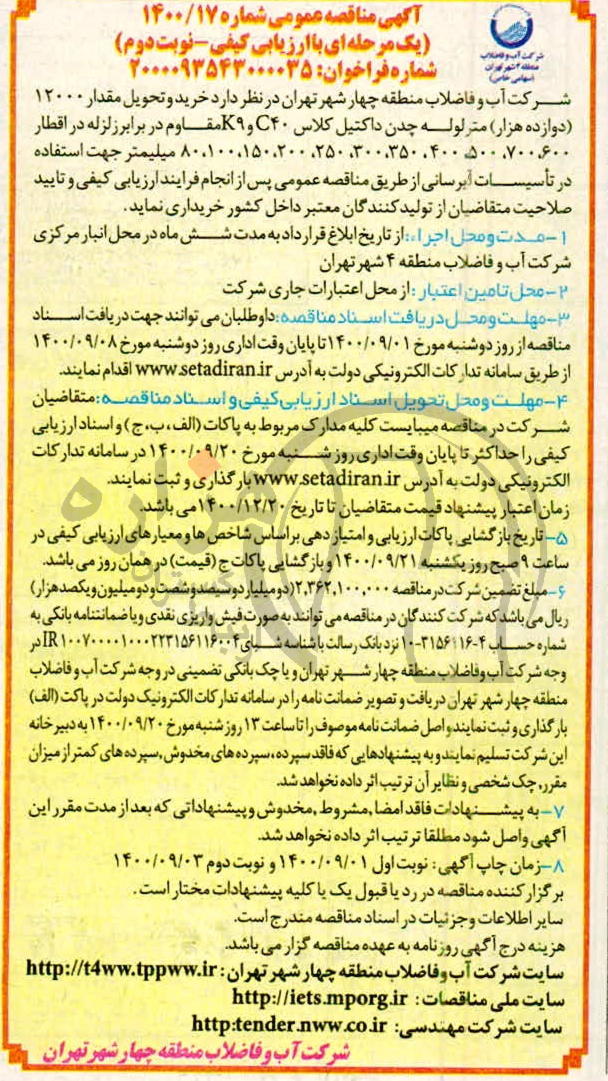 آگهی مناقصه عمومی شماره ۱۴۰۰/۱۷
(یک مرحله ای با ارزیابی کیفی - نوبت دوم)
شماره فراخوان: ۲۰۰۰۰۹۳۵۴۳۰۰۰۰۳۵
شرکت آب و فاضلاب
منطقه ۴ شهر تهران
(سهامی خاص)
شــرکت آب و فاضلاب منطقه چهار شهر تهران در نظر دارد خرید و تحویل مقدار ۱۲۰۰۰
(دوازده هزار) متر لولــه چدن داکتیل کلاس C۴۰ و K۹ مقــاوم در برابر زلزله در اقطار
۶۰۰، ۷۰۰، ۵۰۰، ۴۰۰، ۳۵۰، ۳۰۰، ۲۵۰، ۲۰۰، ۱۵۰، ۱۰۰، ۸۰ میلیمتر جهت استفاده
در تأسیســات آبرسانی از طریق مناقصه عمومی پس از انجام فرایند ارزیابی کیفی و تایید
صلاحیت متقاضیان از تولیدکنندگان معتبر داخل کشور خریداری نماید.
۱- مــدت و محل اجراء: از تاریخ ابلاغ قرارداد به مدت شــش ماه در محل انبار مرکزی
شرکت آب و فاضلاب منطقه ۴ شهر تهران
۲- محل تامین اعتبار: از محل اعتبارات جاری شرکت
۳- مهلــت و محــل دریافت اســناد مناقصه: داوطلبان می توانند جهت دریافت اســناد
مناقصه از روز دوشنبه مورخ ۱۴۰۰/۰۹/۰۱ تا پایان وقت اداری روز دوشنبه مورخ ۱۴۰۰/۰۹/۰۸
از طریق سامانه تدارکات الکترونیکی دولت به آدرس www.setadiran.ir اقدام نمایند.
۴- مهلــت و محل تحویل اســناد ارزیابی کیفی و اســناد مناقصــه: متقاضیان
شــرکت در مناقصه میبایست کلیه مدارک مربوط به پاکات (الف، ب، ج) و اسناد ارزیابی
کیفی را حداکثر تا پایان وقت اداری روز شــنبه مورخ ۱۴۰۰/۰۹/۲۰ در سامانه تدارکات
الکترونیکی دولت به آدرس www.setadiran.ir بارگذاری و ثبت نمایند.
زمان اعتبار پیشنهاد قیمت متقاضیان تا تاریخ ۱۴۰۰/۱۲/۲۰ می باشد.
۵- تاریخ بازگشایی پاکات ارزیابی و امتیازدهی براساس شاخص ها و معیارهای ارزیابی کیفی در
ساعت ۹ صبح روز یکشنبه ۱۴۰۰/۰۹/۲۱ و بازگشایی پاکات ج (قیمت) در همان روز می باشد.
۶- مبلغ تضمین شرکت در مناقصه ۲,۳۶۲,۱۰۰,۰۰۰ (دو میلیارد و سیصد و شصت و دو میلیون و یکصد هزار)
ریال می باشد که شرکت کنندگان در مناقصه می توانند به صورت فیش واریزی نقدی و یا ضمانتنامه بانکی به
شماره حســاب ۱۰-۳۱۵۶۱۱۶-۴ نزد بانک رسالت با شناسه شــبای IR ۱۰۰۷۰۰۰۰۱۰۰۰۲۲۳۱۵۶۱۱۶۰۰۴ در
وجه شرکت آب و فاضلاب منطقه چهار شــهر تهران و یا چک بانکی تضمینی در وجه شرکت آب و فاضلاب
منطقه چهار شهر تهران دریافت و تصویر ضمانت نامه را در سامانه تدارکات الکترونیک دولت در پاکت (الف)
بارگذاری و ثبت نمایند و اصل ضمانت نامه موصوف را تا ساعت ۱۳ روز شنبه مورخ ۱۴۰۰/۰۹/۲۰ به دبیرخانه
این شرکت تسلیم نمایند و به پیشنهادهایی که فاقد سپرده، سپرده های مخدوش, سپرده های کمتر از میزان
مقرر, چک شخصی و نظایر آن ترتیب اثر داده نخواهد شد.
۷- به پیشــنهادات فاقد امضا, مشروط, مخدوش و پیشنهاداتی که بعد از مدت مقرر این
آگهی واصل شود مطلقا ترتیب اثر داده نخواهد شد.
۸- زمان چاپ آگهی: نوبت اول ۱۴۰۰/۰۹/۰۱ و نوبت دوم ۱۴۰۰/۰۹/۰۳
برگزارکننده مناقصه در رد یا قبول یک یا کلیه پیشنهادات مختار است.
سایر اطلاعات و جزئیات در اسناد مناقصه مندرج است.
هزینه درج آگهی روزنامه به عهده مناقصه گزار می باشد.
سایت شرکت آب و فاضلاب منطقه چهار شهر تهران: http://t4ww.tppww.ir
سایت ملی مناقصات: http://iets.mporg.ir
سایت شرکت مهندسی: http:tender.nww.co.ir
شرکت آب و فاضلاب منطقه چهار شهر تهران